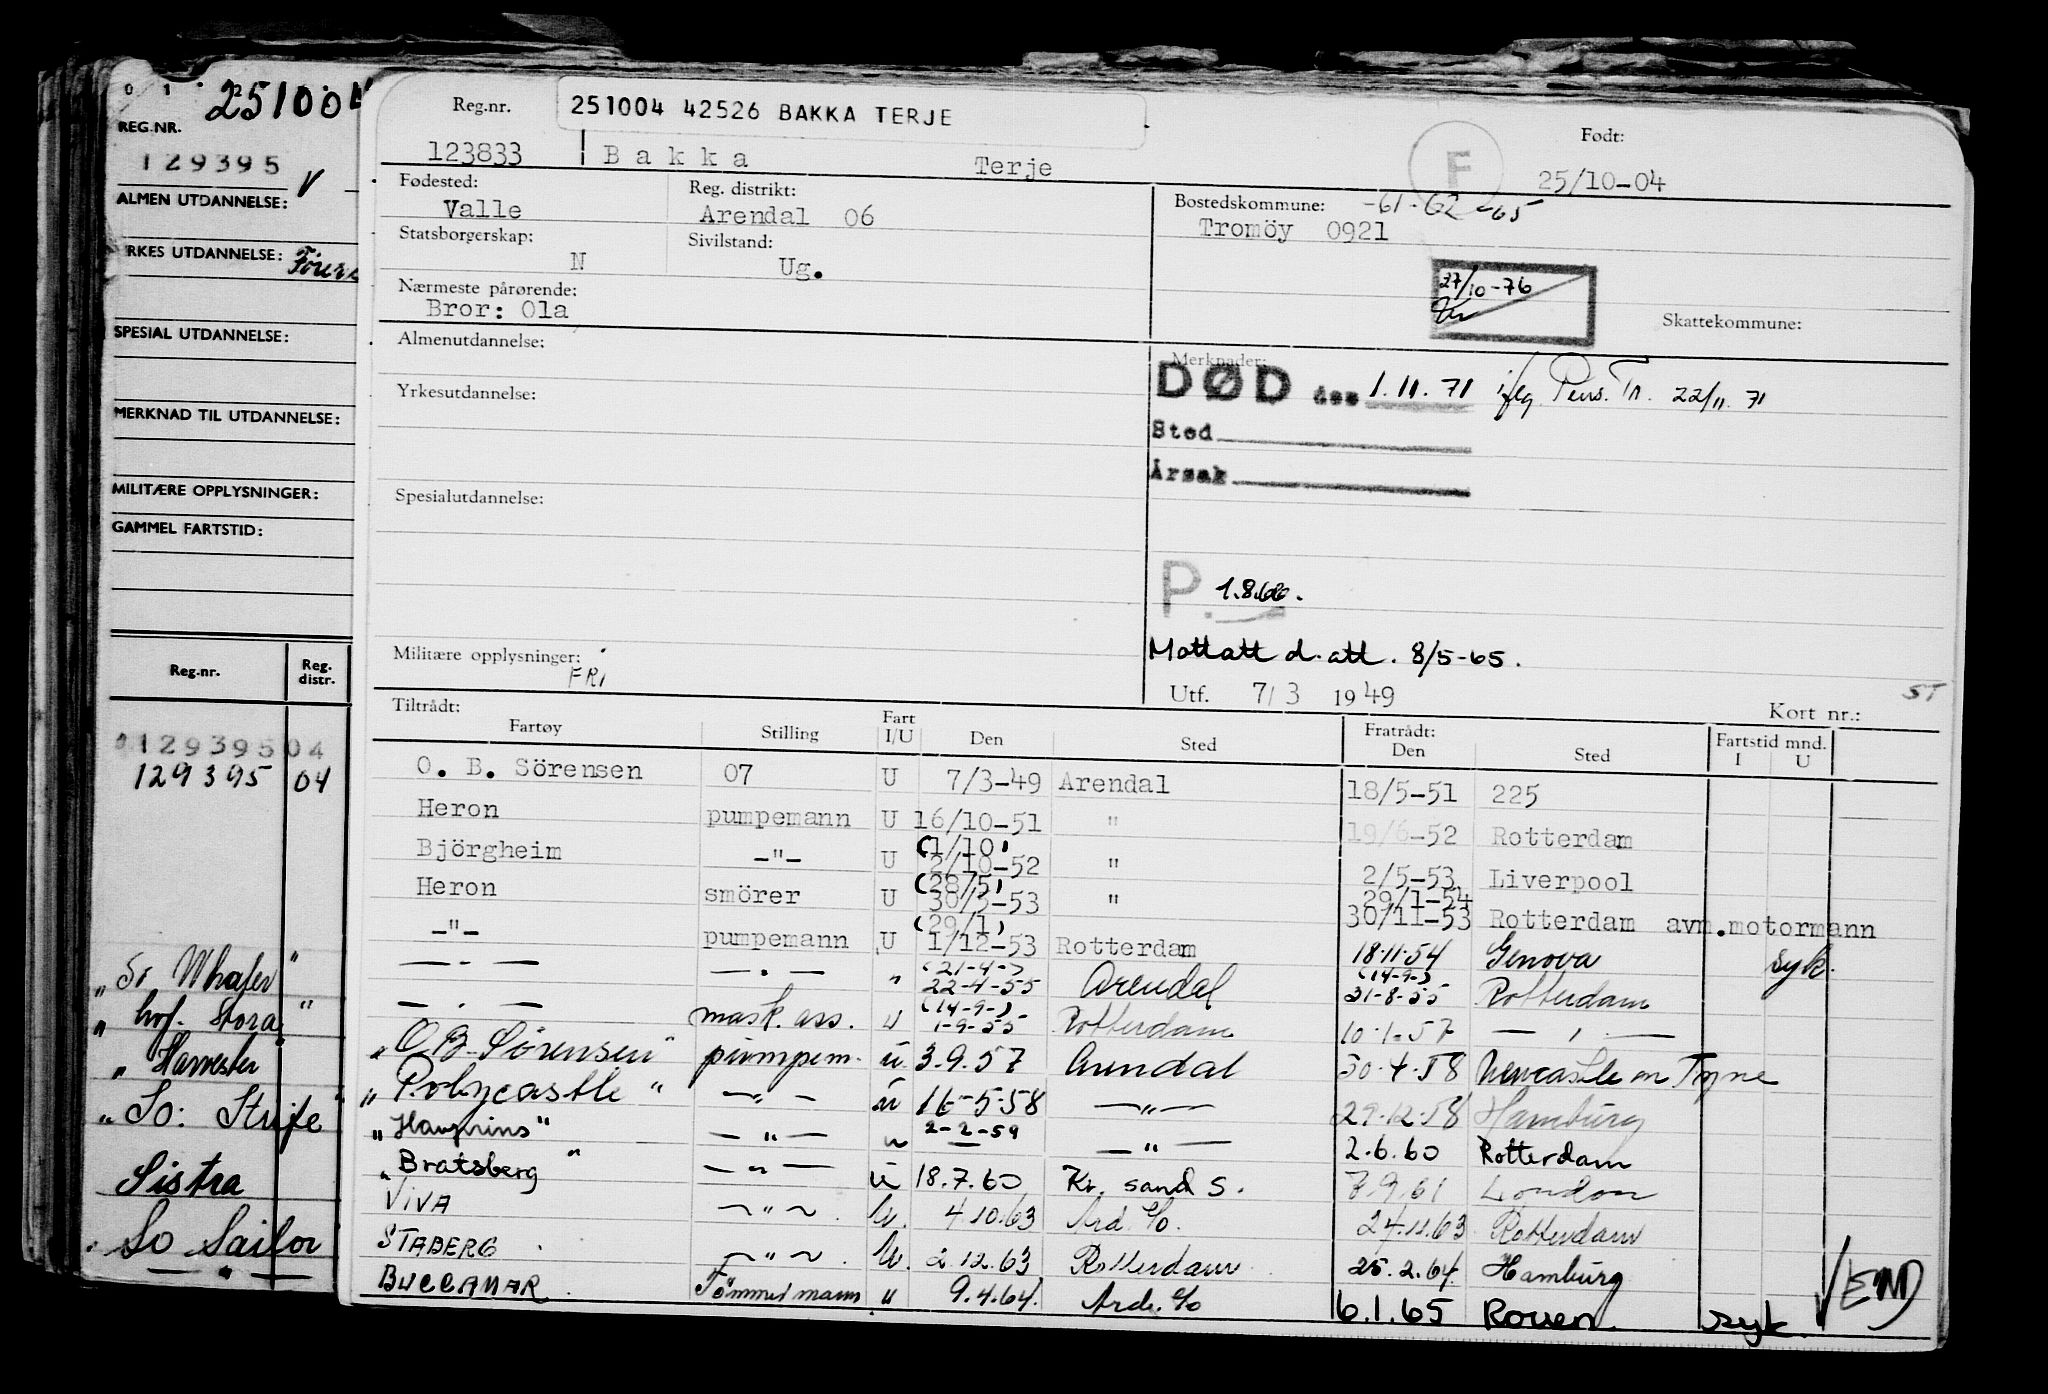 0 1 2
251004
REG.NR.
129395 V
ALMEN UTDANNELSE:
RKES UTDANNELSE:
SPESIAL UTDANNELSE:
MERKNAD TIL UTDANNELSE:
MILITÆRE OPPLYSNINGER:
GAMMEL FARTSTID:
Reg.nr. Reg. distr.
129395 04
129395 04
Sistra
So Sailor
Reg.nr. 251004 42526 BAKKA TERJE
Født:
123833 Bakka Terje F 25/10-04
Fødested: Reg. distrikt: Bostedskommune: -61-62-65
Valle Arendal 06 Tromöy 0921
Statsborgerskap: Sivilstand:
N Ug.
27/10-76
Nærmeste pårørende:
Bror: Ola
Skattekommune:
Almenutdannelse: Merknader:
DØD den 1.11.71 iflg. Pens. Tr. 22/11.71
Yrkesutdannelse:
Sted
Årsak
Spesialutdannelse:
P. 1.8.66.
Militære opplysninger: FRI
Mottatt d. att. 8/5-65.
Utf. 7/3 1949 ST
Tiltrådt: Kort nr.:
Fartøy Stilling Fart I/U Den Sted Fratrådt: Den Sted Fartstid mnd. I U
O. B. Sörensen 07 U 7/3-49 Arendal 18/5-51 225
Heron pumpemann U 16/10-51 " 19/6-52 Rotterdam
Björgheim -"- U (1/10) 2/10-52 " 2/5-53 Liverpool
Heron smörer U (28/5) 30/5-53 " 29/1-54 30/11-53 Rotterdam avm.motormann
-"- pumpemann U (29/1) 1/12-53 Rotterdam 18.11.54 Genova syk.
— · — — · — " (21-4-) 22-4-55 Arendal (14-9-) 31-8-55 Rotterdam
— · — mask. ass. u (14-9-) 1-9-55 Rotterdam 10.1.57 — " —
"O.B. Sörensen" pumpem. u 3.9.57 Arendal 30.4.58 Newcastle on Tyne
"Polycastle" — " — u 16-5-58 — " — 29.12.58 Hamburg
— " — 2-2-59 — " — 2.6.60 Rotterdam
"Bratsberg" — " — u 18.7.60 Kr. sand S. 7.9.61 London
VIVA — " — u. 4.10.63 Ard. S/O. 24.11.63 Rotterdam
STABERG — " — u. 2.12.63 Rotterdam 25.2.64 Hamburg
BUCCAMAR Tömmermann " 9.4.64. Ard. S/O 6.1.65 Rouen syk.
VEND